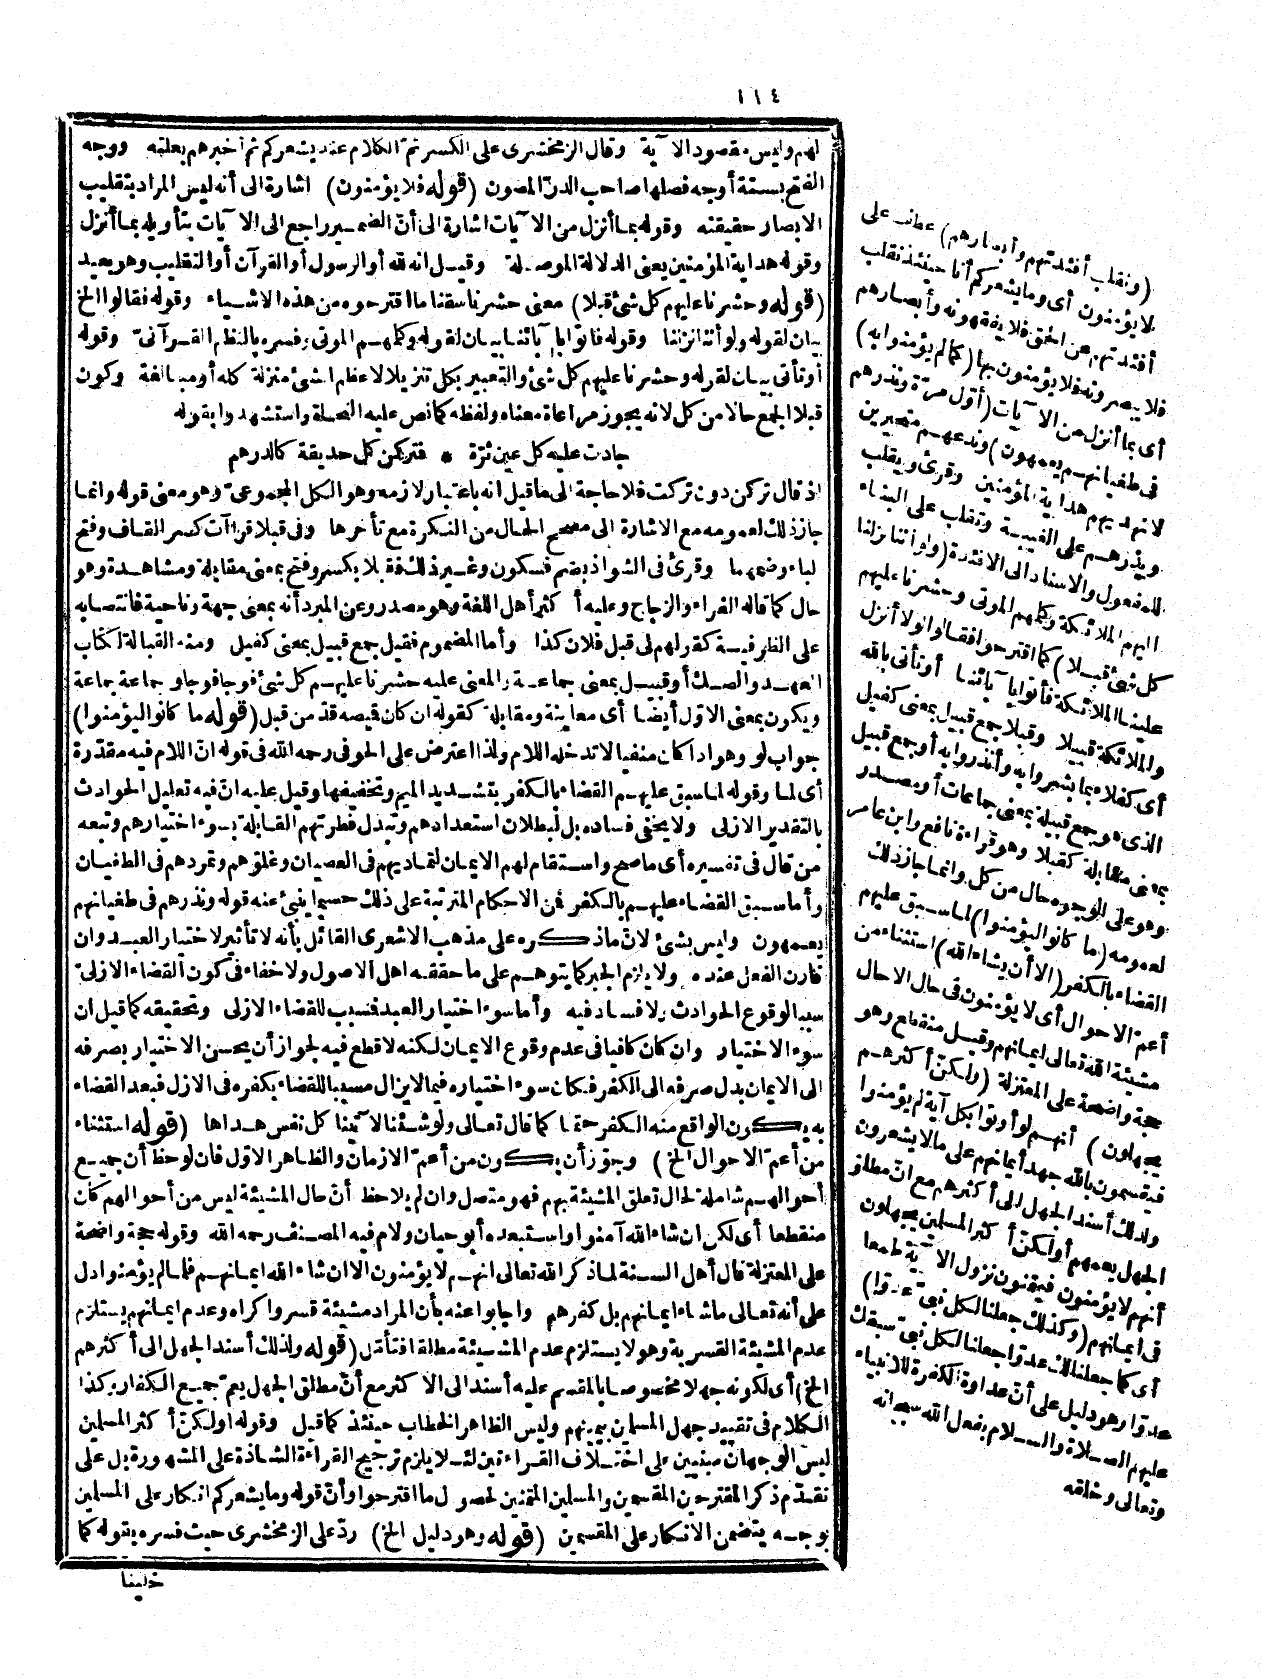 ١١٤
لهم وليس مقصود الآية وقال الزمخشرى على الكسر تمّ الكلام عند يشعركم ثم أخبرهم بعلمه ووجه
الفتح بستة أوجه فصلها صاحب الدرّ المصون (قوله فلا يؤمنون) اشارة الى أنه ليس المراد بتقليب
الابصار حقيقته وقوله بما أنزل من الآيات اشارة الى أنّ الضمير راجع الى الآيات بتأويله بما أنزل
وقوله هداية المؤمنين يعنى الدلالة الموصلة وقيل انه لله أو الرسول أو القرآن أو التقليب وهو بعيد
(قوله وحشرنا عليهم كل شئ قبلا) معنى حشرنا سقنا ما اقترحوه من هذه الاشياء وقوله فقالوا الخ
بيان لقوله ولو أننا نزلنا وقوله فاتوا بآبائنا بيان لقوله وكلمهم الموتى وفسره بالنظم القرآنىّ وقوله
أو تأتى بيان لقوله وحشرنا عليهم كل شئ والتعبير بكل تنزيلا لاعظم الشئ منزلة كله أو مبالغة وكون
قبلا الجمع حالا من كل لانه يجوز مراعاة معناه ولفظه كما نص عليه النحاة واستشهدوا بقوله
جادت عليه كل عين ثرّة * فتركن كل حديقة كالدرهم
اذ قال تركن دون تركت فلا حاجة الى ما قيل انه باعتبار لازمه وهو الكل المجموعىّ وهو معنى قوله وانما
جاز ذلك لعمومه مع الاشارة الى مصحح الحال من النكرة مع تأخرها وفى قبلا قراآت كسر القاف وفتح
لباء وضمهما وقرئ فى الشواذ بضم فسكون وغير ذلك فقبلا بكسر وفتح بمعنى مقابلة ومشاهدة وهو
حال كما قاله الفراء والزجاج وعليه أكثر أهل اللغة وهو مصدر وعن المبرد أنه بمعنى جهة وناحية فانتصابه
على الظرفية كقولهم لى قبل فلان كذا وأما المضموم فقيل جمع قبيل بمعنى كفيل ومنه القبالة لكتاب
العهد والصك أو قبيل بمعنى جماعة والمعنى عليه حشرنا عليهم كل شئ فوجا فوجا وجماعة جماعة
ويكون بمعنى الاوّل أيضا أى معاينة ومقابلة كقوله ان كان قميصه قدّ من قبل (قوله ما كانوا ليؤمنوا)
جواب لو وهو اذا كان منفيا لا تدخله اللام ولذا اعترض على الحوفى رحمه الله فى قوله انّ اللام فيه مقدّرة
أى لما وقوله لما سبق عليهم القضاء بالكفر بتشديد الميم وتخفيفها وقيل عليه انّ فيه تعليل الحوادث
بالتقدير الازلى ولا يخفى فساده بل لبطلان استعدادهم وتبدل فطرتهم القابلة بسوء اختيارهم وتبعه
من قال فى تفسيره أى ما صح واستقام لهم الايمان لتماديهم فى العصيان وغلوّهم وتمردهم فى الطغيان
وأما سبق القضاء عليهم بالكفر فمن الاحكام المترتبة على ذلك حسبما ينبئ عنه قوله ونذرهم فى طغيانهم
يعمهون وليس بشئ لانّ ما ذكره على مذهب الاشعرى القائل بأنه لا تأثير لاختيار العبد وان
قارن الفعل عنده ولا يلزم الجبر كما يتوهم على ما حققه اهل الاصول ولا خفاء فى كون القضاء الازلىّ
سببا لوقوع الحوادث ولا فساد فيه وأما سوء اختيار العبد فسبب للقضاء الازلى وتحقيقه كما قيل ان
سوء الاختيار وان كان كافيا فى عدم وقوع الايمان لكنه لا قطع فيه لجواز أن يحسن الاختيار بصرفه
الى الايمان بدل صرفه الى الكفر فكان سوء اختياره فيما لا يزال مسببا للقضاء بكفره فى الازل فبعد القضاء
به يكون الواقع منه الكفر حتما كما قال تعالى ولو شئنا لآتينا كل نفس هداها (قوله استثناء
من أعمّ الاحوال الخ) وجوّز أن يكون من أعمّ الازمان والظاهر الاوّل فان لوحظ أن جميع
أحوالهم شاملة لحال تعلق المشيئة بهم فهو متصل وان لم يلاحظ أنّ حال المشيئة ليس من أحوالهم كان
منقطعا أى لكن ان شاء الله آمنوا واستبعده أبو حيان ولام فيه المصنف رحمه الله وقوله حجة واضحة
على المعتزلة قال أهل السنة لما ذكر الله تعالى انهم لا يؤمنون الا ان شاء الله ايمانهم فلما لم يؤمنوا دل
على أنه تعالى ما شاء ايمانهم بل كفرهم واجابوا عنه بأن المراد مشيئة قسر واكراه وعدم ايمانهم يستلزم
عدم المشيئة القسرية وهو لا يستلزم عدم المشيئة مطلقا فتأمّل (قوله ولذلك أسند الجهل الى أكثرهم
الخ) أى لكونه جهلا مخصوصا بالمقسم عليه أسند الى الاكثر مع أنّ مطلق الجهل يعمّ جميع الكفار وكذا
الكلام فى تقييد جهل المسلمين بيمينهم وليس الظاهر الخطاب حينئذ كما قيل وقوله اولكنّ أكثر المسلمين
ليس الوجهان مبنيين على اختلاف القراءتين لئلا يلزم ترجيح القراءة الشاذة على المشهورة بل على
تقدّم ذكر المقترحين المقسمين والمسلمين المتمنين لحصول ما اقترحوا وأنّ قوله وما يشعركم انكار على المسلمين
بوجه يتضمن الانكار على المقسمين (قوله وهو دليل الخ) ردّ على الزمخشرى حيث فسره بقوله كما
خلينا
(ونقلب أفئدتهم وأبصارهم) عطف على
لا يؤمنون أى وما يشعركم أنا حينئذ نقلب
أفئدتهم عن الحق فلا يفقهونه وأبصارهم
فلا يبصرونه فلا يؤمنون بها (كما لم يؤمنوا به)
أى بما أنزل من الآيات (أوّل مرّة ونذرهم
فى طغيانهم يعمهون) وندعهم متحيرين
لا نهديهم هداية المؤمنين وقرئ ويقلب
ويذرهم على الغيبة وتقلب على البناء
للمفعول والاسناد الى الافئدة (ولو أننا نزلنا
اليهم الملائكة وكلمهم الموتى وحشرنا عليهم
كل شئ قبلا) كما اقترحوا فقالوا لولا أنزل
علينا الملائكة فأتوا بآبائنا أو تأتى بالله
والملائكة قبيلا وقبلا جمع قبيل بمعنى كفيل
أى كفلاء بما بشروا به وأنذروا به أو جمع قبيل
الذى هو جمع قبيلة بمعنى جماعات أو مصدر
بمعنى مقابلة كقبلا وهو قراءة نافع وابن عامر
وهو على الوجوه حال من كل وانما جاز ذلك
لعمومه (ما كانوا ليؤمنوا) لما سبق عليهم
القضاء بالكفر (الا أن يشاء الله) استثناء من
أعمّ الاحوال أى لا يؤمنون فى حال الا حال
مشيئة الله تعالى ايمانهم وقيل منقطع وهو
حجة واضحة على المعتزلة (ولكنّ أكثرهم
يجهلون) أنهم لو أوتوا بكل آية لم يؤمنوا
فيقسمون بالله جهد أيمانهم على ما لا يشعرون
ولذلك أسند الجهل الى أكثرهم مع انّ مطلق
الجهل يعمهم أو لكنّ أكثر المسلمين يجهلون
أنهم لا يؤمنون فيتمنون نزول الآية طمعا
فى ايمانهم (وكذلك جعلنا لكل نبىّ عدوّا)
أى كما جعلنا لك عدوّا جعلنا لكل نبىّ سبقك
عدوّا وهو دليل على أنّ عداوة الكفرة للانبياء
عليهم الصلاة والسلام بفعل الله سبحانه
وتعالى وخلقه